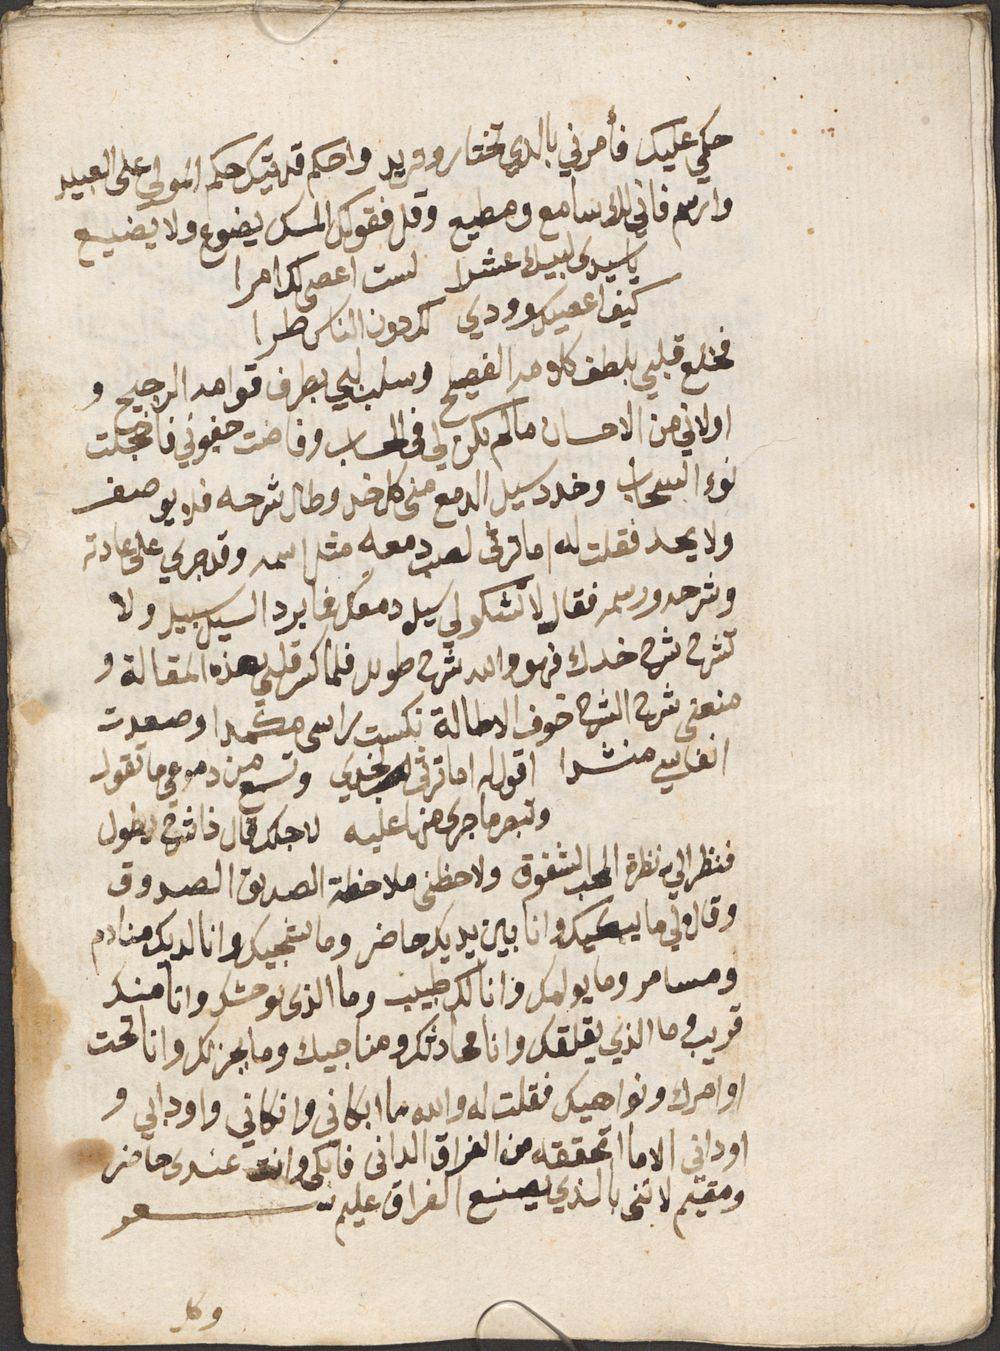 حكمي عليك فأمرني بالذي تختار وتريد واحكم قد يتك حكم المولى على العبيد
وارسم فاني لك سامع ومطيع وقل فقولك المسك يضوع ولا يضيع
يا سيدي لبيك عشرا لست اعصي لك امرا
كيف اعصيك وودي لك دون الناس طرا
فخلع قلبي بلطف كلامه الفصيح وسلب لبي بظرف قوامه الرجيح و
اولاني من الاحسان ما لم يكن لي في الحساب وفاضت جفوني فاخجلت
نوء السحاب وخدد سيل الدمع مني كل خد وطال شرحه فلا يوصف
ولا يحد فقلت له اما ترثى لصب دمعه مثل اسمه وقد جرى على عادته
وشرحه ورسمه فقال لا تشكو لي سيل دمعك فما يرد السيل سبيل ولا
تشرح شرح خدك فهو والله شرح طويل فلما كسر قلبي بهذه المقالة و
منعني شرح الشرح خوف الاطالة نكست راسي مكمدا وصعدت
انفاسي منشدا اقول له اما ترثى لخدي وتسمع من دموعي ما تقول
وتبصر ما جرى منها عليه لاجلك قال ذا شرح يطول
فنظر الي نظرة المحب الشفوق ولاحظني ملاحظة الصديق الصدوق
وقال لي ما يبكيك وانا بين يديك حاضر وما يشجيك وانا لديك منادم
ومسامر وما يولمك وانا لك طبيب وما الذي يوحشك وانا منك
قريب وما الذي يقلقك وانا محادثك ومناجيك وما يحزنك وانا تحت
اوامرك ونواهيك فقلت له والله ما ابكاني وانكاني واودابي و
اوداني الا ما اتحققه من الفراق الداني فابكي وانت عندي حاضر
ومقيم لانني بالذي يصنع الفراق عليم شعر
وكل